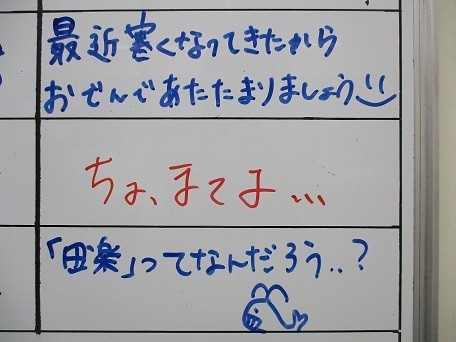 最近寒くなってきたから
おでんであたたまりましょう
ちょ、まてよ...
「田楽」ってなんだろう..?